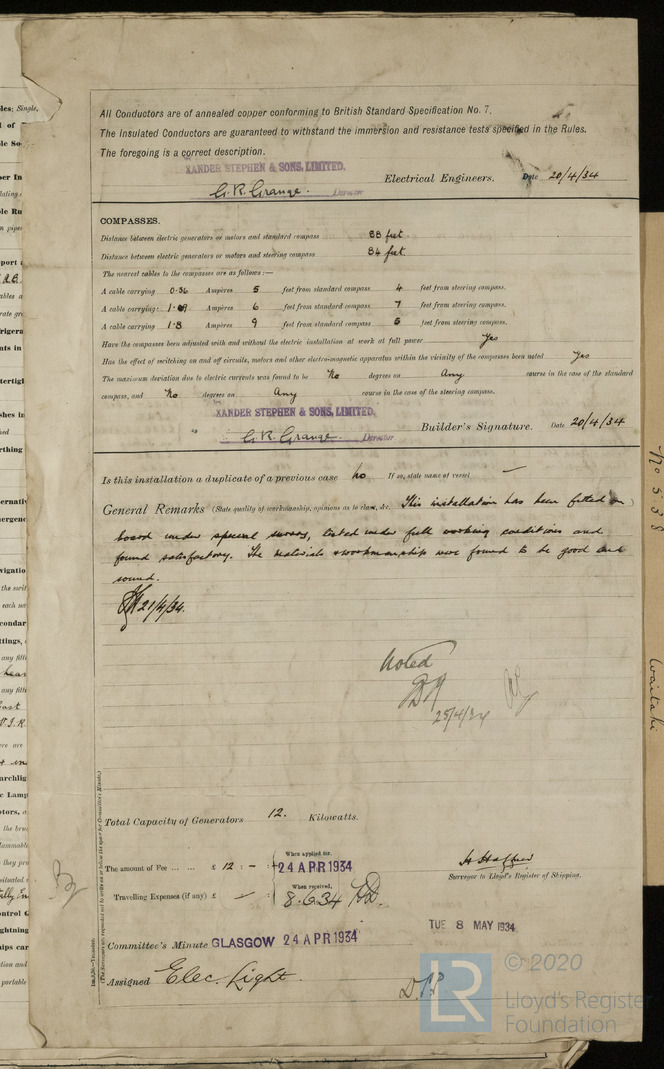 All Conductors are of annealed copper conforming to British Standard Specification No. 7.
The Insulated Conductors are guaranteed to withstand the immersion and resistance tests specified in the Rules.
The foregoing is a correct description.
XANDER STEPHEN & SONS, LIMITED.
G. R. Grange. Director Electrical Engineers. Date 20/4/34
COMPASSES.
Distance between electric generators or motors and standard compass 88 feet.
Distance between electric generators or motors and steering compass 84 feet.
The nearest cables to the compasses are as follows:—
A cable carrying 0.36 Ampères 5 feet from standard compass 4 feet from steering compass.
A cable carrying Ampères 6 feet from standard compass 7 feet from steering compass.
A cable carrying 1.8 Ampères 9 feet from standard compass 5 feet from steering compass.
Have the compasses been adjusted with and without the electric installation at work at full power Yes
Has the effect of switching on and off circuits, motors and other electro-magnetic apparatus within the vicinity of the compasses been noted Yes
The maximum deviation due to electric currents was found to be No degrees on Any course in the case of the standard
compass, and No degrees on Any course in the case of the steering compass.
XANDER STEPHEN & SONS, LIMITED,
G. R. Grange. Director Builder's Signature. Date 20/4/34
Is this installation a duplicate of a previous case No If so, state name of vessel —
General Remarks (State quality of workmanship, opinions as to class, &c. This installation has been fitted on
board under special survey, tested under full working conditions and
found satisfactory. The materials & workmanship were found to be good and
sound.
21/4/34.
Noted
25/4/34
Total Capacity of Generators 12. Kilowatts.
The amount of Fee ... ... £ 12 : — : When applied for, 24 APR 1934
Travelling Expenses (if any) £ — When received, 8.6.34
Surveyor to Lloyd's Register of Shipping.
TUE 8 MAY 1934
Committee's Minute GLASGOW 24 APR 1934
Assigned Elec. Light.
No 538
Waitaki
LR © 2020
Lloyd's Register
Foundation